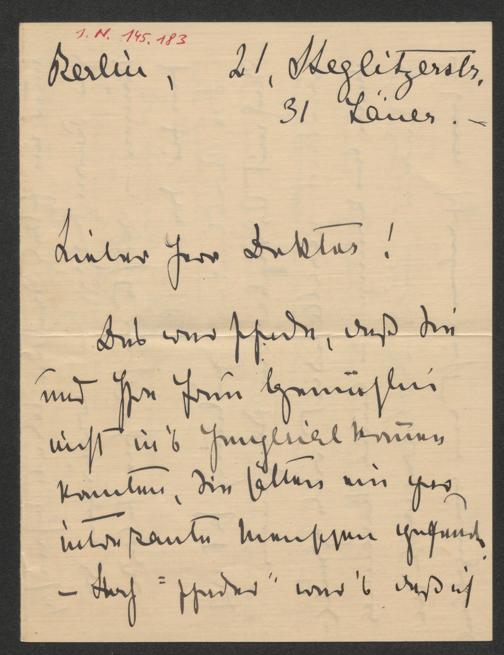 I. N. 145.183
Berlin, 21, Steglitzerstr.
31 Jäner. –
Lieber Herr Doktor!
Das war schade, daß Sie
und Ihre Frau Gemahlin
nicht in's kommen
konnten, Sie hätten ein par
interessante Menschen gefunden.
– Noch "schader" war's daß ich